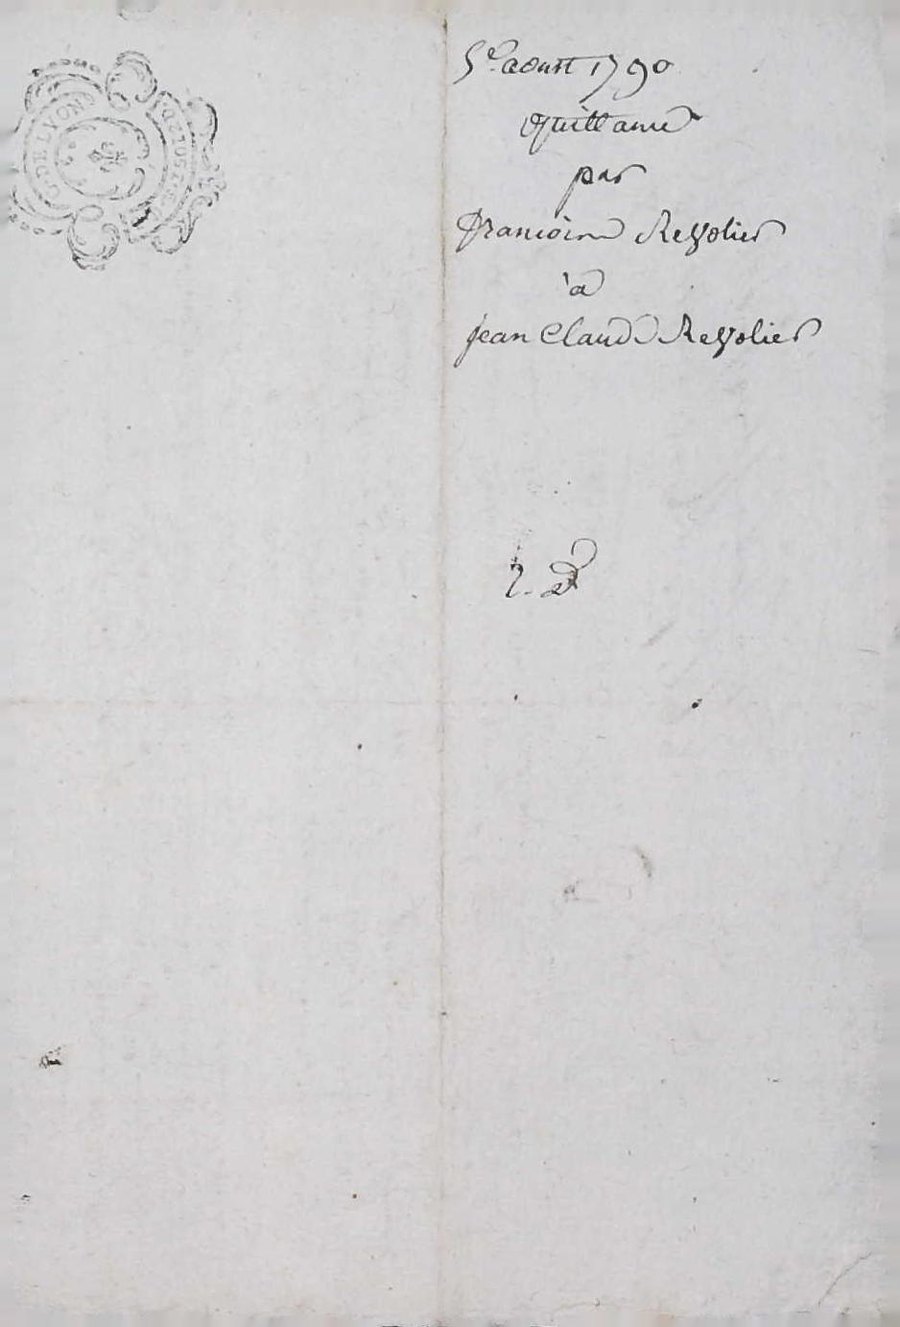 G. DE LYON
DEUX SOLS
5e. aoust 1790
Quittance
par
Francoise Revolier
à
jean Claude Revolier